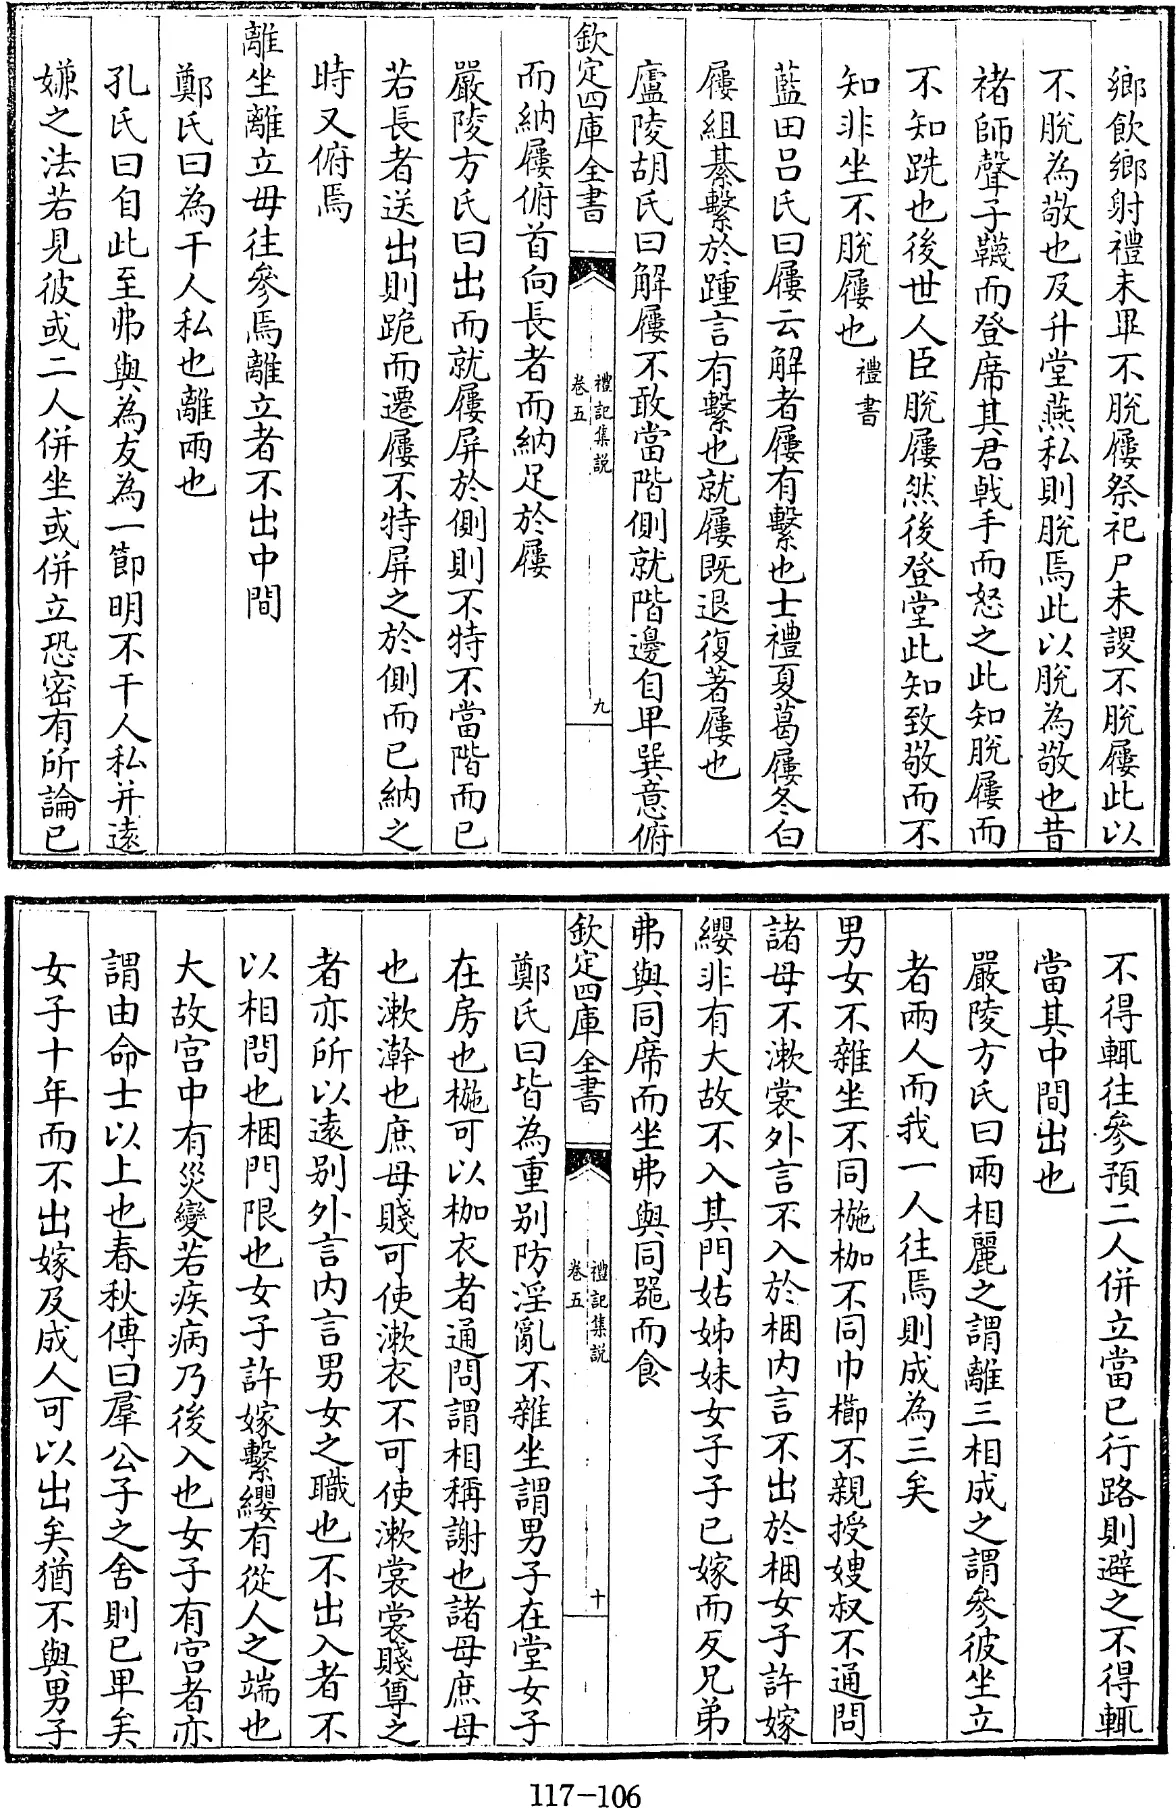 鄉飲鄉射禮未畢不脫屨祭祀尸未謖不脫屨此以
不脫為敬也及升堂燕私則脫焉此以脫為敬也昔
褚師聲子韈而登席其君戟手而怒之此知脫屨而
不知跣也後世人臣脫屨然後登堂此知致敬而不
知非坐不脫屨也禮書
藍田吕氏曰屨云解者屨有繫也士禮夏葛屨冬白
屨組綦繫於踵言有繫也就屨既退復著屨也
廬陵胡氏曰解屨不敢當階側就階邊自卑巽意俯
欽定四庫全書
禮記集説
卷五
九
而納屨俯首向長者而納足於屨
嚴陵方氏曰出而就屨屏於側則不特不當階而已
若長者送出則跪而遷屨不特屏之於側而已納之
時又俯焉
離坐離立毋往參焉離立者不出中間
鄭氏曰為干人私也離兩也
孔氏曰自此至弗與為友為一節明不干人私并遠
嫌之法若見彼或二人併坐或併立恐密有所論已
不得輒往參預二人併立當已行路則避之不得輒
當其中間出也
嚴陵方氏曰兩相麗之謂離三相成之謂參彼坐立
者兩人而我一人往焉則成為三矣
男女不雜坐不同椸枷不同巾櫛不親授嫂叔不通問
諸母不漱裳外言不入於梱内言不出於梱女子許嫁
纓非有大故不入其門姑姊妹女子子已嫁而反兄弟
弗與同席而坐弗與同器而食
欽定四庫全書
禮記集説
卷五
十
鄭氏曰皆為重别防淫亂不雜坐謂男子在堂女子
在房也椸可以枷衣者通問謂相稱謝也諸母庶母
也漱澣也庶母賤可使漱衣不可使漱裳裳賤尊之
者亦所以遠别外言内言男女之職也不出入者不
以相問也梱門限也女子許嫁繫纓有從人之端也
大故宫中有災變若疾病乃後入也女子有宫者亦
謂由命士以上也春秋傳曰羣公子之舍則已卑矣
女子十年而不出嫁及成人可以出矣猶不與男子
117-106